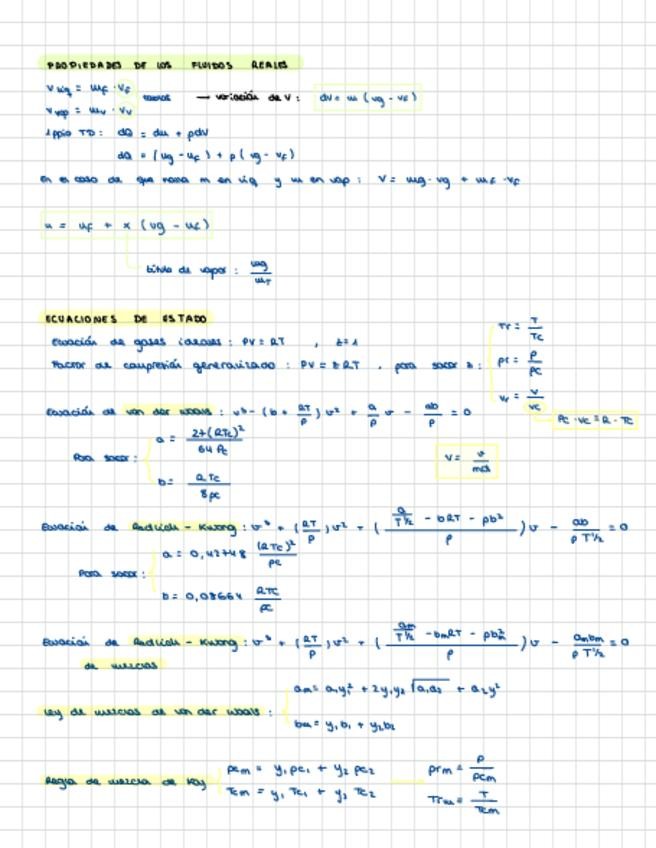 PROPIEDADES DE LOS FLUIDOS REALES
V liq = mf · vf
V vap = mv · vv
→ variación de V : dV = m (vg - vf)
1 ppio TD : dQ = du + pdV
dQ = (ug - uf) + p (vg - vf)
En el caso de que m en liq y m en vap : V = mg · vg + mf · vf
u = uf + x (ug - uf)
título de vapor : mg / mT
ECUACIONES DE ESTADO
Ecuación de gases ideales : PV = RT , z = 1
Factor de compresión generalizado : PV = z RT , para sacar z :
Tr = T / Tc
pr = P / Pc
vr = v / vc
Pc · vc = R · Tc
Ecuación de van der waals : v³ - (b + RT/P) v² + a/P v - ab/P = 0
Para sacar :
a = 27 (RTc)² / 64 Pc
b = RTc / 8pc
V = v / mol
Ecuación de Redlich - Kwong : v³ + (RT/P) v² + ( (a/T^1/2 - bRT - pb²) / P ) v - ab / P T^1/2 = 0
Para sacar :
a = 0,42748 (RTc)² / pc
b = 0,08664 RTc / pc
Ecuación de Redlich - Kwong : v³ + (RT/P) v² + ( (am/T^1/2 - bmRT - pbm²) / P ) v - ambm / P T^1/2 = 0
de mezclas
Ley de mezclas de van der waals :
am = a₁y₁² + 2y₁y₂ √a₁a₂ + a₂y²
bm = y₁b₁ + y₂b₂
Regla de mezcla de Kay
pcm = y₁ pc₁ + y₂ pc₂
Tcm = y₁ Tc₁ + y₂ Tc₂
prm = P / pcm
Trm = T / Tcm